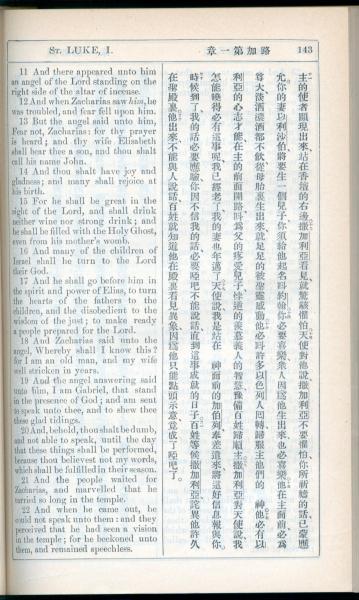 ST. LUKE, I.
路加第一章
143
11 And there appeared unto him
an angel of the Lord standing on the
right side of the altar of incense.
12 And when Zacharias saw him, he
was troubled, and fear fell upon him.
13 But the angel said unto him,
Fear not, Zacharias: for thy prayer
is heard; and thy wife Elisabeth
shall bear thee a son, and thou shalt
call his name John.
14 And thou shalt have joy and
gladness; and many shall rejoice at
his birth.
15 For he shall be great in the
sight of the Lord, and shall drink
neither wine nor strong drink; and
he shall be filled with the Holy Ghost,
even from his mother's womb.
16 And many of the children of
Israel shall he turn to the Lord
their God.
17 And he shall go before him in
the spirit and power of Elias, to turn
the hearts of the fathers to the
children, and the disobedient to the
wisdom of the just; to make ready
a people prepared for the Lord.
18 And Zacharias said unto the
angel, Whereby shall I know this?
for I am an old man, and my wife
well stricken in years.
19 And the angel answering said
unto him, I am Gabriel, that stand
in the presence of God; and am sent
to speak unto thee, and to shew thee
these glad tidings.
20 And, behold, thou shalt be dumb,
and not able to speak, until the day
that these things shall be performed,
because thou believest not my words,
which shall be fulfilled in their season.
21 And the people waited for
Zacharias, and marvelled that he
tarried so long in the temple.
22 And when he came out, he
could not speak unto them: and they
perceived that he had seen a vision
in the temple; for he beckoned unto
them, and remained speechless.
主的使者顯現出來、站在香壇的右邊、撒加利亞看見、就驚駭懼怕、天使對他說、撒加利亞、不要懼怕、你所祈禱的話、已蒙應
允、你的妻以利沙伯將要生一個兒子、你須給他起名叫約翰、你必要喜歡快樂、衆人因爲他生出來、也必喜樂、他在主面前必爲
尊大、淡酒濃酒都不飲、從母胎裏生出來、就足足的被聖靈感動、他必叫許多以色列人、回轉歸服主他們的 神、他必有以
利亞的心志才能、在主的前面開路、叫爲父的疼愛兒子、悖逆的羨慕義人的智慧、豫備百姓歸順主、撒加利亞對天使說、我
怎能曉得必有這事呢、我已經老了、我的妻也年邁了、天使說、我是站在 神面前的加伯列、奉差遣來將這好信息報與你、
時候到了、我的話必要應驗、你因不信我的話、必要啞吧不能說話、直到這事成就的日子、百姓等候撒加利亞、詫異他許久
在聖殿裏、他出來不能與人說話、百姓就知道他在殿裏看見異象、因爲他只能點頭示意、竟成了啞吧了。